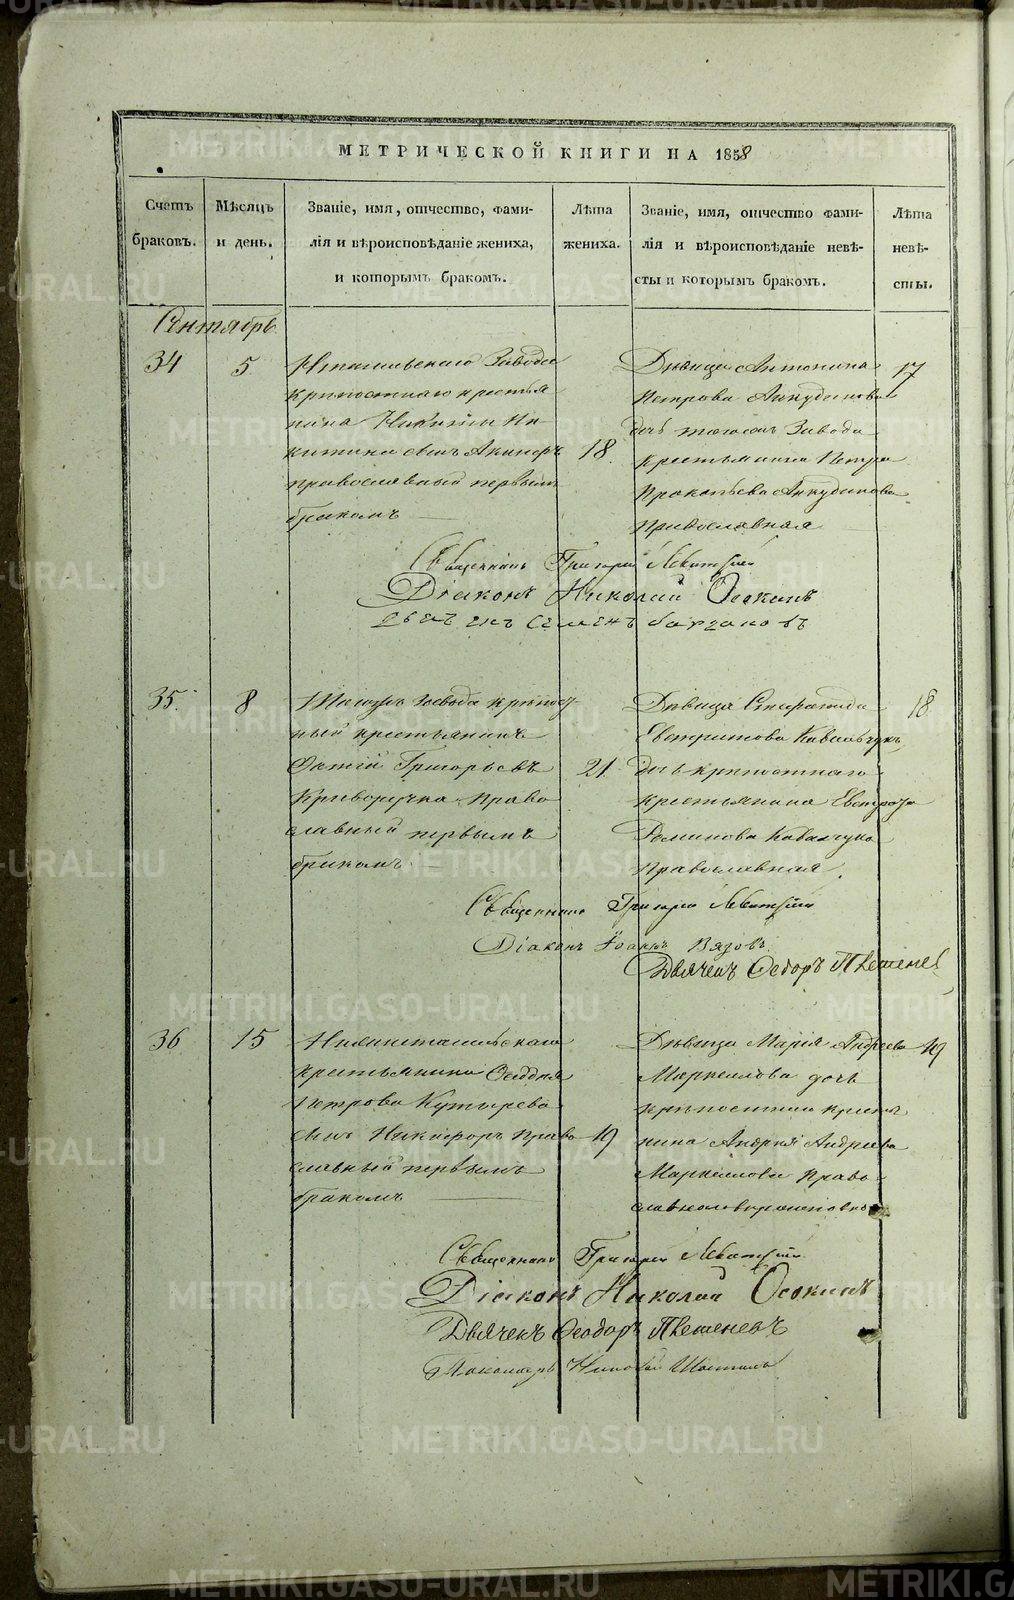 МЕТРИЧЕСКОЙ КНИГИ НА 1858
Счетъ браковъ.
Мѣсяцъ и день.
Званіе, имя, отчество, фами-
лія и вѣроисповѣданіе жениха,
и которымъ бракомъ.
Лѣта
жениха.
Званіе, имя, отчество фами-
лія и вѣроисповѣданіе невѣ-
сты и которымъ бракомъ.
Лѣта
невѣ-
сты.
Сентябрь
34
5
Завода
крѣпостнаго крестья
нина Никиты Ни
китина сынъ
православный первымъ
бракомъ
18.
Дѣвица Антонина
Петрова Анкудинова
дочь тогожъ Завода
крестьянина Петра
Прокопьева Анкудинова
Православная
17
Священникъ Григорій Левитскій
Діаконъ Николай Осокинъ
Семенъ
35.
8
Тогожъ завода крѣпост
ный крестьянинъ
Григорьевъ
Криворучка Право
славный первымъ
бракомъ.
21.
Дѣвица
дочь крѣпостнаго
крестьянина
Православная.
18
Священникъ Григорій Левитскій
Діаконъ Іоаннъ Вязовъ
Дьячекъ Ѳеодоръ
36
15
Нижнетагильскаго
крестьянина
Петрова Кутырева
сынъ Никифоръ Право
славный первымъ
бракомъ
19
Дѣвица Марія Андреева
Маркелова дочь
крѣпостнаго крестья
нина Андрея Андреева
Маркелова Право
19
Священникъ Григорій Левитскій
Діаконъ Николай Осокинъ
Дьячекъ Ѳеодоръ
Пономарь Николай
METRIKI.GASO-URAL.RU